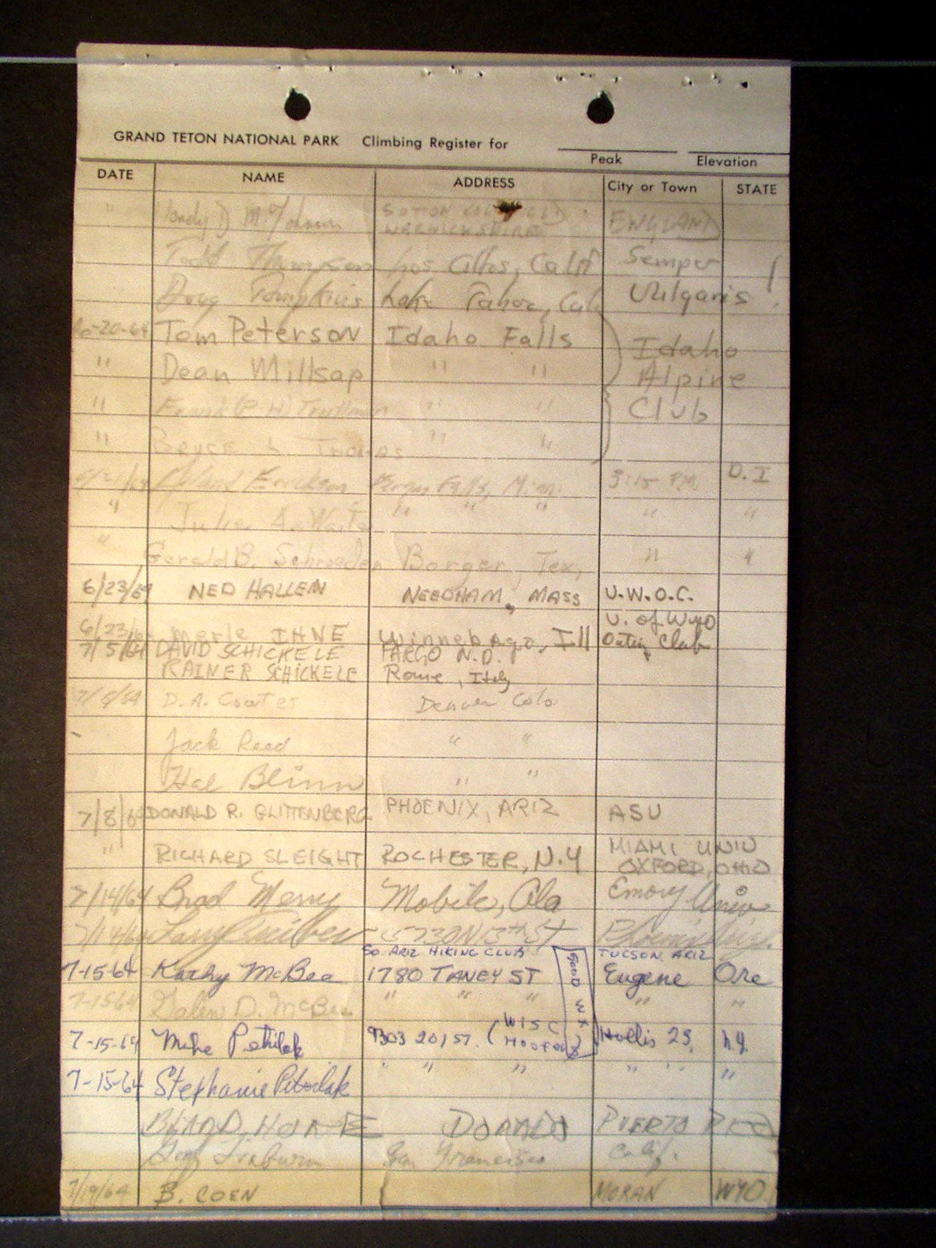 GRAND TETON NATIONAL PARK Climbing Register for
Peak Elevation
DATE NAME ADDRESS City or Town STATE
" ENGLAND
WARWICKSHIRE
Todd Thompson Los Altos, Calif Semper
Doug Tompkins Lake Tahoe, Cal Vulgaris !
6-20-64 Tom Peterson Idaho Falls Idaho
" Dean Millsap " " Alpine
" Frank " " Club
" Boyce L. Thomas " "
Erickson Fergus Falls, Minn. 3:15 P.M. D.I
" Julie A. " " " "
" Gerald B. Schroeder Borger, Tex, " "
6/23/64 NED HALLEN NEEDHAM, MASS U.W.O.C.
U. of Wyo
6/23/64 Merle IHNE Winnebago, Ill Outing Club
7/5/64 DAVID SCHICKELE FARGO N.D.
RAINER SCHICKELE Rome, Italy
D.A. Coates Denver Colo
Jack Reed " "
Hal Blinn " "
7/8/64 DONALD R. GLITTENBERG PHOENIX, ARIZ ASU
" RICHARD SLEIGHT ROCHESTER, N.Y MIAMI UNIV
OXFORD, OHIO
7/14/64 Brad Merry Mobile, Ala Emory Univ
7/14/64 Larry
SO. ARIZ HIKING CLUB TUCSON, ARIZ
7-15-64 Kathy McBee 1780 TANEY ST Eugene Ore
7-15-64 Galen D. McBee " " " " "
GOOD WX
7-15-64 Mike Petrilak 9303 201 ST. (WISC HOOFERS) Hollis 23, N.Y.
7-15-64 Stephanie Petrilak " " " " "
DORADO PUERTO RICO
San Francisco Calif.
7/19/64 B. COEN MORAN WYO